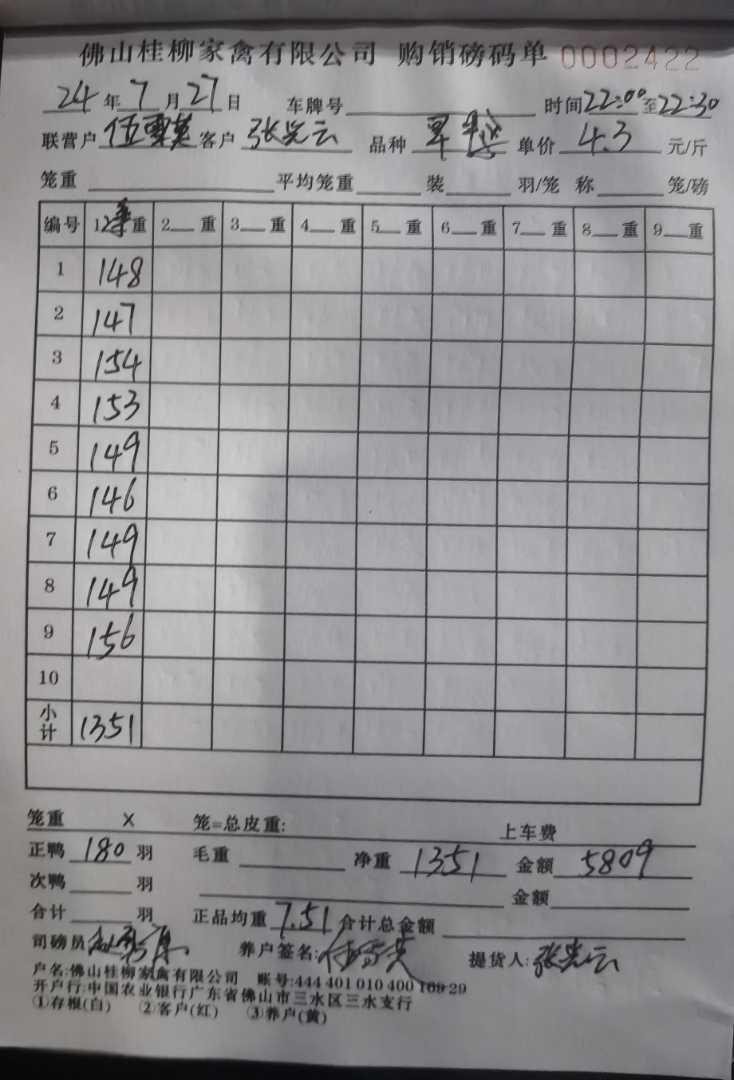 佛山桂柳家禽有限公司 购销磅码单 0002422
24年7月27日 车牌号 时间22:00至22:30
联营户 伍雪英 客户 张光云 品种 单价 4.3 元/斤
笼重 平均笼重 装 羽/笼 称 笼/磅
编号 1 净重 2 重 3 重 4 重 5 重 6 重 7 重 8 重 9 重
1 148
2 147
3 154
4 153
5 149
6 146
7 149
8 149
9 156
10
小计 1351
笼重 X 笼=总皮重: 上车费
正鸭 180 羽 毛重 净重 1351 金额 5809
次鸭 羽 金额
合计 羽 正品均重 7.51 合计总金额
司磅员 养户签名: 伍雪英 提货人: 张光云
户名:佛山桂柳家禽有限公司 账号:444 401 010 400 169 29
开户行:中国农业银行广东省佛山市三水区三水支行
①存根(白) ②客户(红) ③养户(黄)